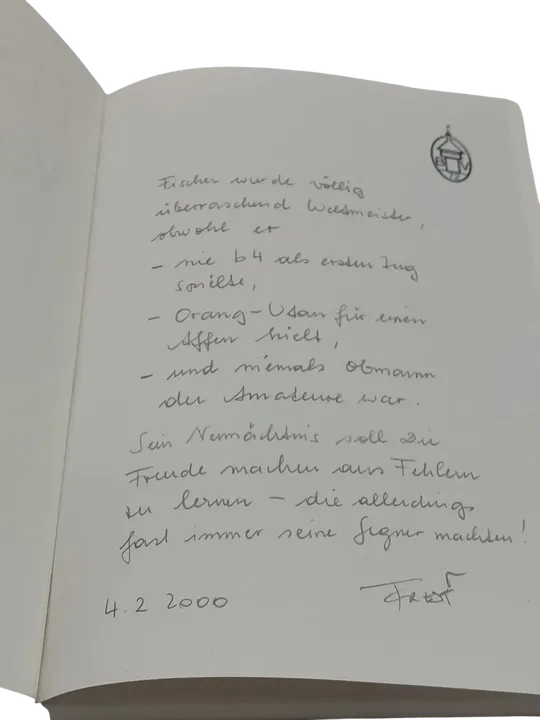 Fischer wurde völlig
überraschend Weltmeister,
obwohl er
- nie b4 als ersten Zug
spielte,
- Orang-Utan für einen
Affen hielt,
- und niemals Obmann
der Amateure war.
Sein Vermächtnis soll Dir
Freude machen aus Fehlern
zu lernen - die allerdings
fast immer seine Gegner machten!
4.2 2000